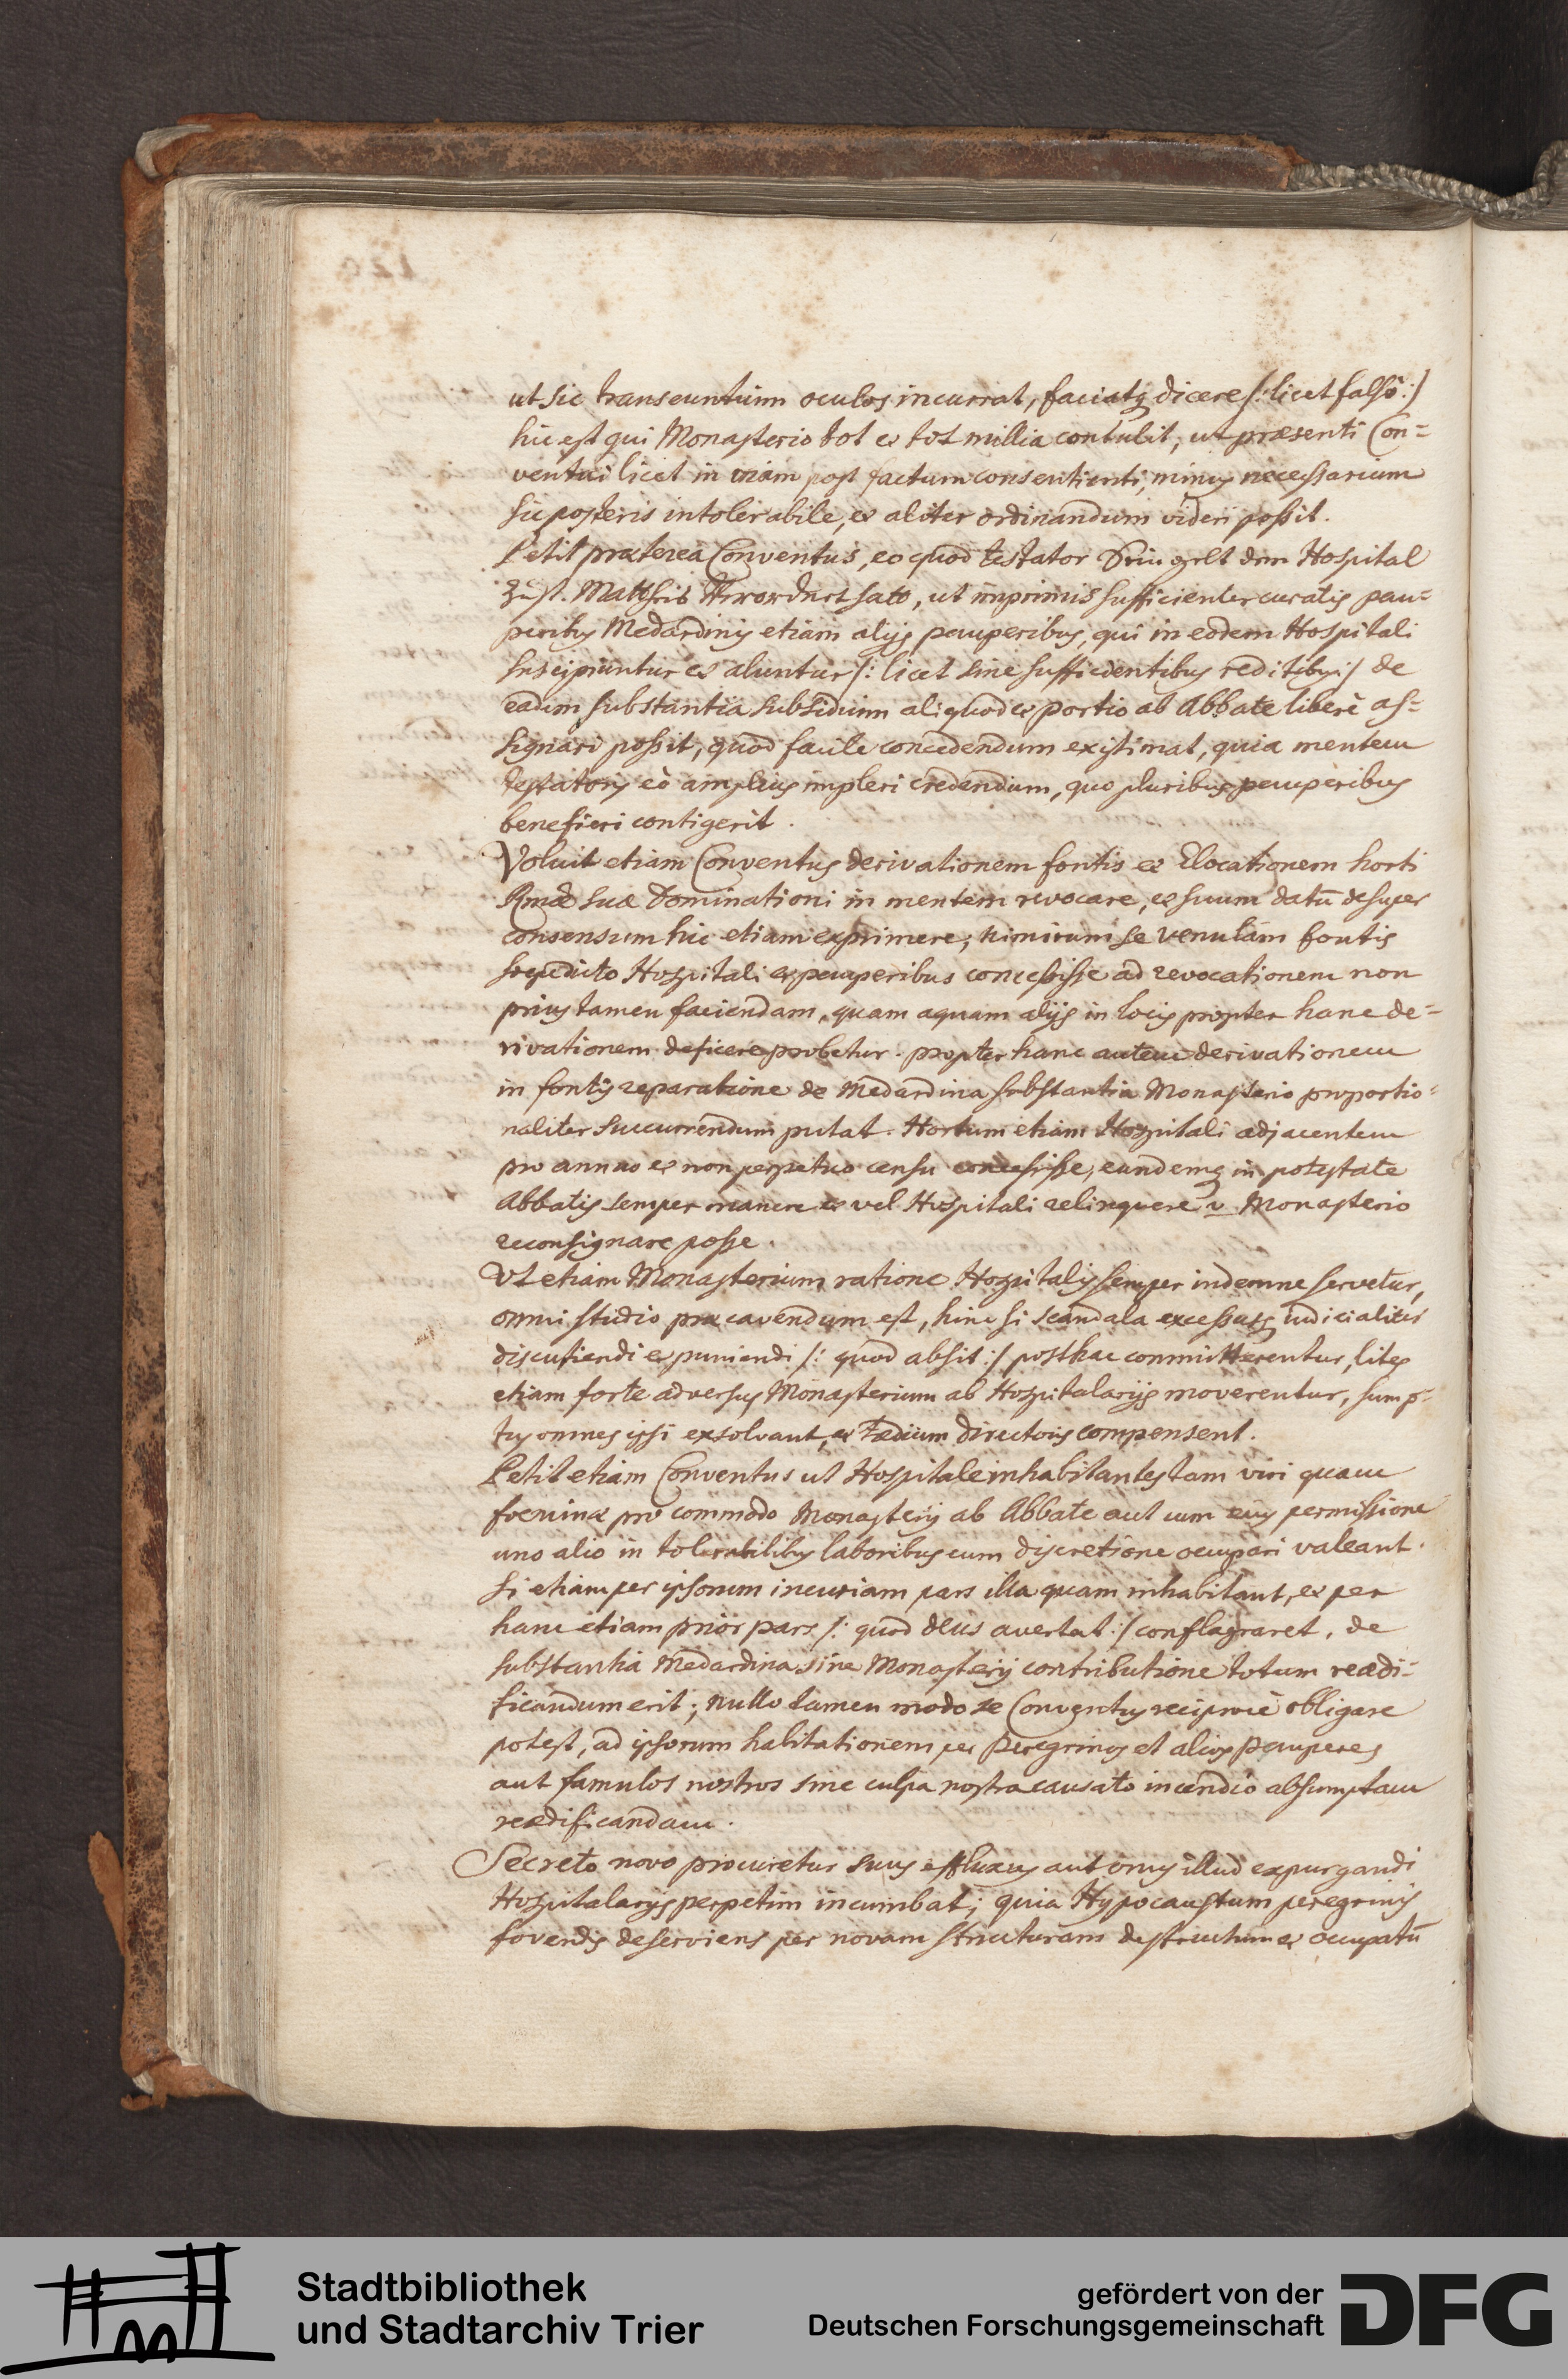 ut sic transeuntium oculos incurrat, faciatq dicere /: licet falsò :/
hic est qui Monasterio tot et tot millia contulit, ut præsenti Con=
ventui licet in viam post factum consentienti, minus necessarium
sic posteris intolerabile, et aliter ordinandum videri possit.
Petit præterea Conventus, eo quod testator Sein gelt dem Hospital
zu st. Matthis hatt, ut inprimis sufficienter curatis pau=
peribus Medardinis etiam alijs pauperibus, qui in eodem Hospitali
suscipiuntur et aluntur /: licet sine sufficientibus reditibus :/ de
eadem substantia subsidium aliquod et portio ab Abbate liberè as=
signari possit, quod facile concedendum existimat, quia mentem
testatoris eò amplius impleri credendum, quo pluribus pauperibus
benefieri contigerit.
Voluit etiam Conventus derivationem fontis et Elocationem horti
Rmæ suæ Dominationi in mentem revocare, et suum datū desuper
consensum hic etiam exprimere; nimirum se venulam fontis
sæpedicto Hospitali et pauperibus concessisse ad revocationem non
prius tamen faciendam, quam aquam alijs in locis propter hanc de=
rivationem deficere probetur. propter hanc autem derivationem
in fontis reparatione de Medardina substantia Monasterio proportio=
naliter succurrendum putat. Hortum etiam Hospitali adjacentem
pro annuo et non perpetuo censu concessisse, eundemq in potestate
Abbatis semper manere et vel Hospitali relinquere v. Monasterio
reconsignare posse.
Ut etiam Monasterium ratione Hospitalis semper indemne servetur,
omni studio præcavendum est, hinc si scandala excessusq judicialiter
discutiendi et puniendi /: quod absit :/ posthac committerentur, lites
etiam forte adversus Monasterium ab Hospitalarijs moverentur, sump=
tus omnes ipsi exsolvant, et Tædium directoris compensent.
Petit etiam Conventus ut Hospitale inhabitantes tam viri quam
foeminæ pro commodo Monasterij ab Abbate aut cum eius permissione
uno alio in tolerabilibus laboribus cum discretione occupari valeant.
Si etiam per ipsorum incuriam pars illa quam inhabitant, et per
hanc etiam prior pars /: quod deus avertat :/ conflagraret, de
substantia Medardina sine Monasterij contributione totum reædi=
ficandum erit; nullo tamen modo se Conventus reciprocè obligare
potest, ad ipsorum habitationem per Peregrinos et alios Pauperes
aut famulos nostros sine culpa nostra causato incendio absumptam
reædificandam.
Secreto novo procuretur suus effluxus aut onus illud expurgandi
Hospitalarijs perpetim incumbat; quia Hypocaustum peregrinis
fovendis deserviens per novam structuram destructum et occupatū
Stadtbibliothek
und Stadtarchiv Trier
gefördert von der
Deutschen Forschungsgemeinschaft
DFG